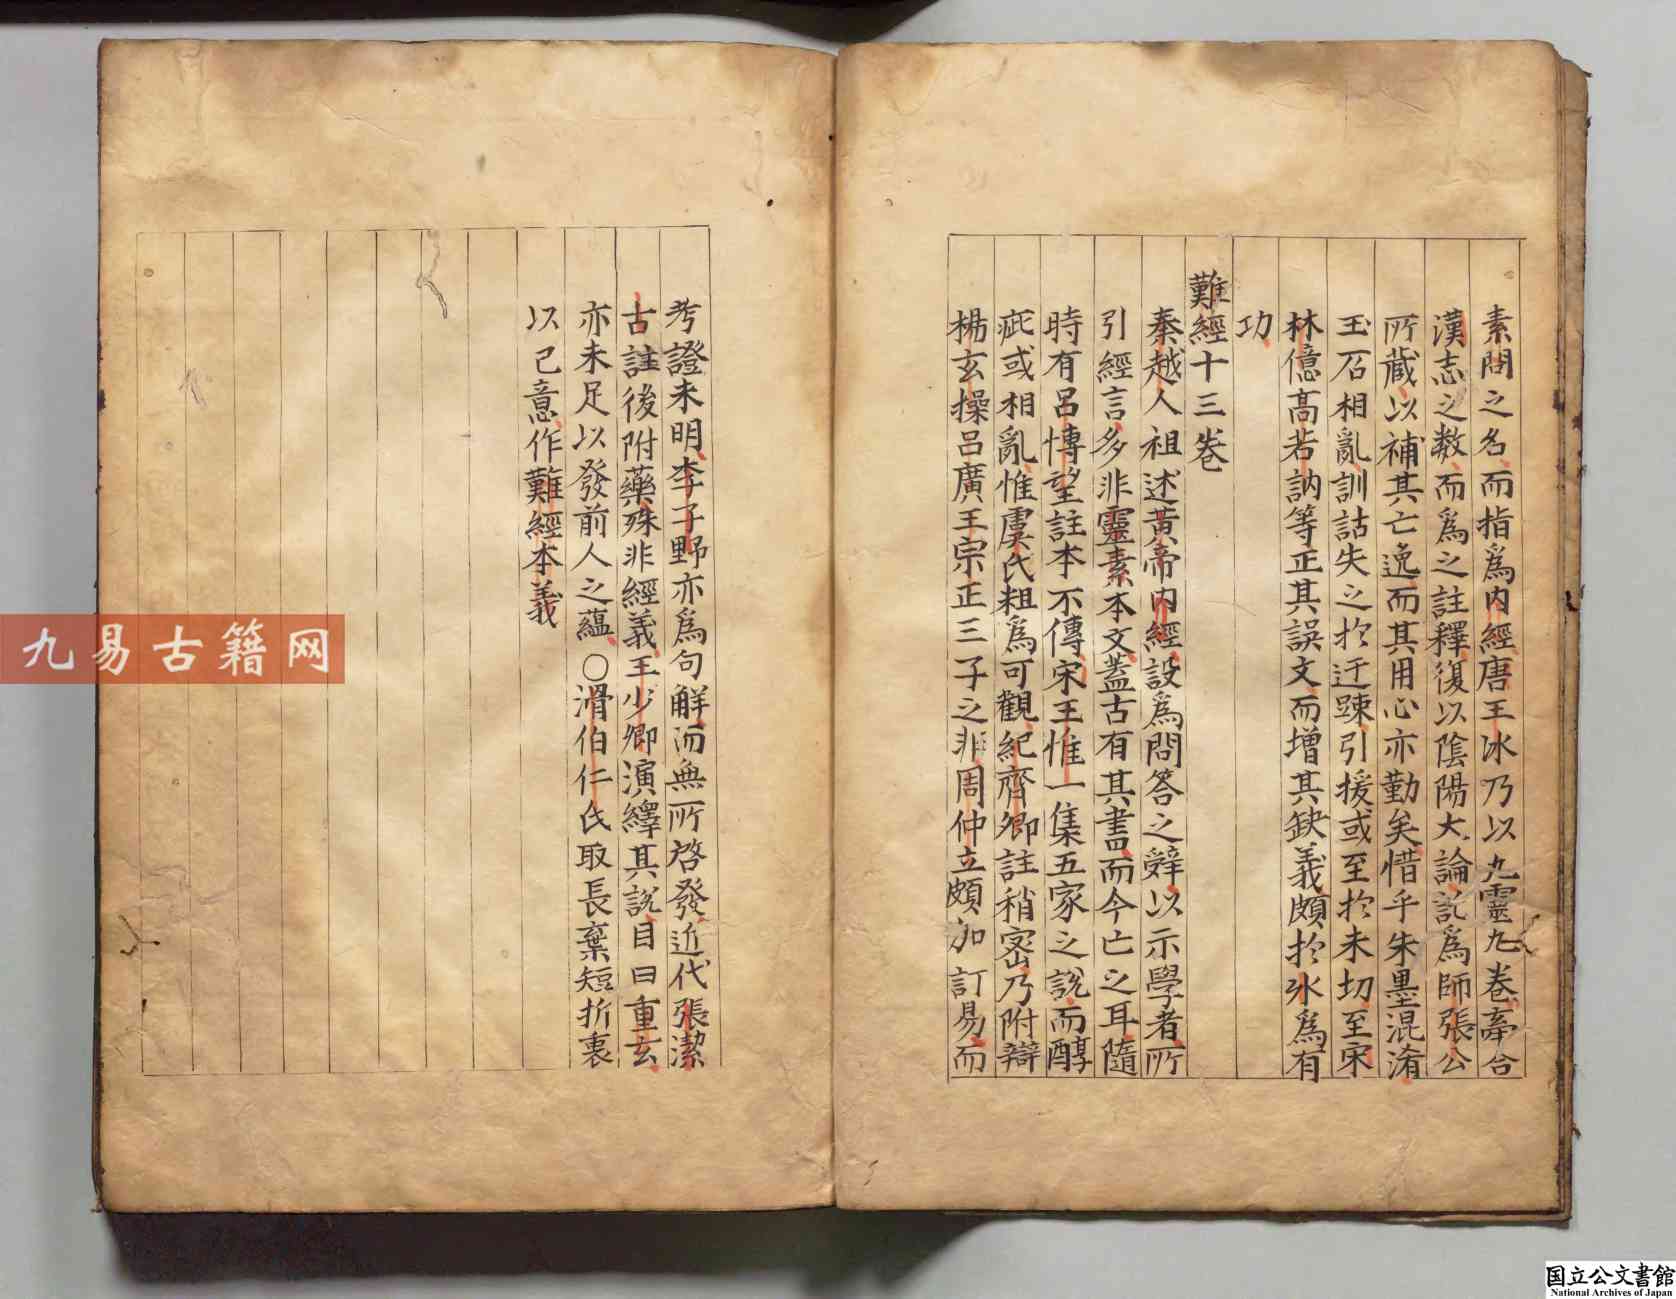 素問之名而指爲內經唐王冰乃以九靈九卷牽合
漢志之數而爲之註釋復以陰陽大論託爲師張公
所藏以補其亡逸而其用心亦勤矣惜乎朱墨混淆
玉石相亂訓詁失之於迂踈引援或至於未切至宋
林億高若訥等正其誤文而增其缺義頗於冰爲有
功
難經十三卷
秦越人祖述黃帝內經設爲問答之辤以示學者所
引經言多非靈素本文蓋古有其書而今亡之耳隨
時有呂博望註本不傳宋王惟一集五家之說而醇
疵或相亂惟虞氏粗爲可觀紀齊卿註稍密乃附辯
楊玄操呂廣王宗正三子之非周仲立頗加訂易而
考證未明李子野亦爲句解而無所啓發近代張潔
古註後附藥殊非經義王少卿演繹其說目曰重玄
亦未足以發前人之蘊○滑伯仁氏取長棄短折裏
以己意作難經本義
九易古籍网
国立公文書館
National Archives of Japan